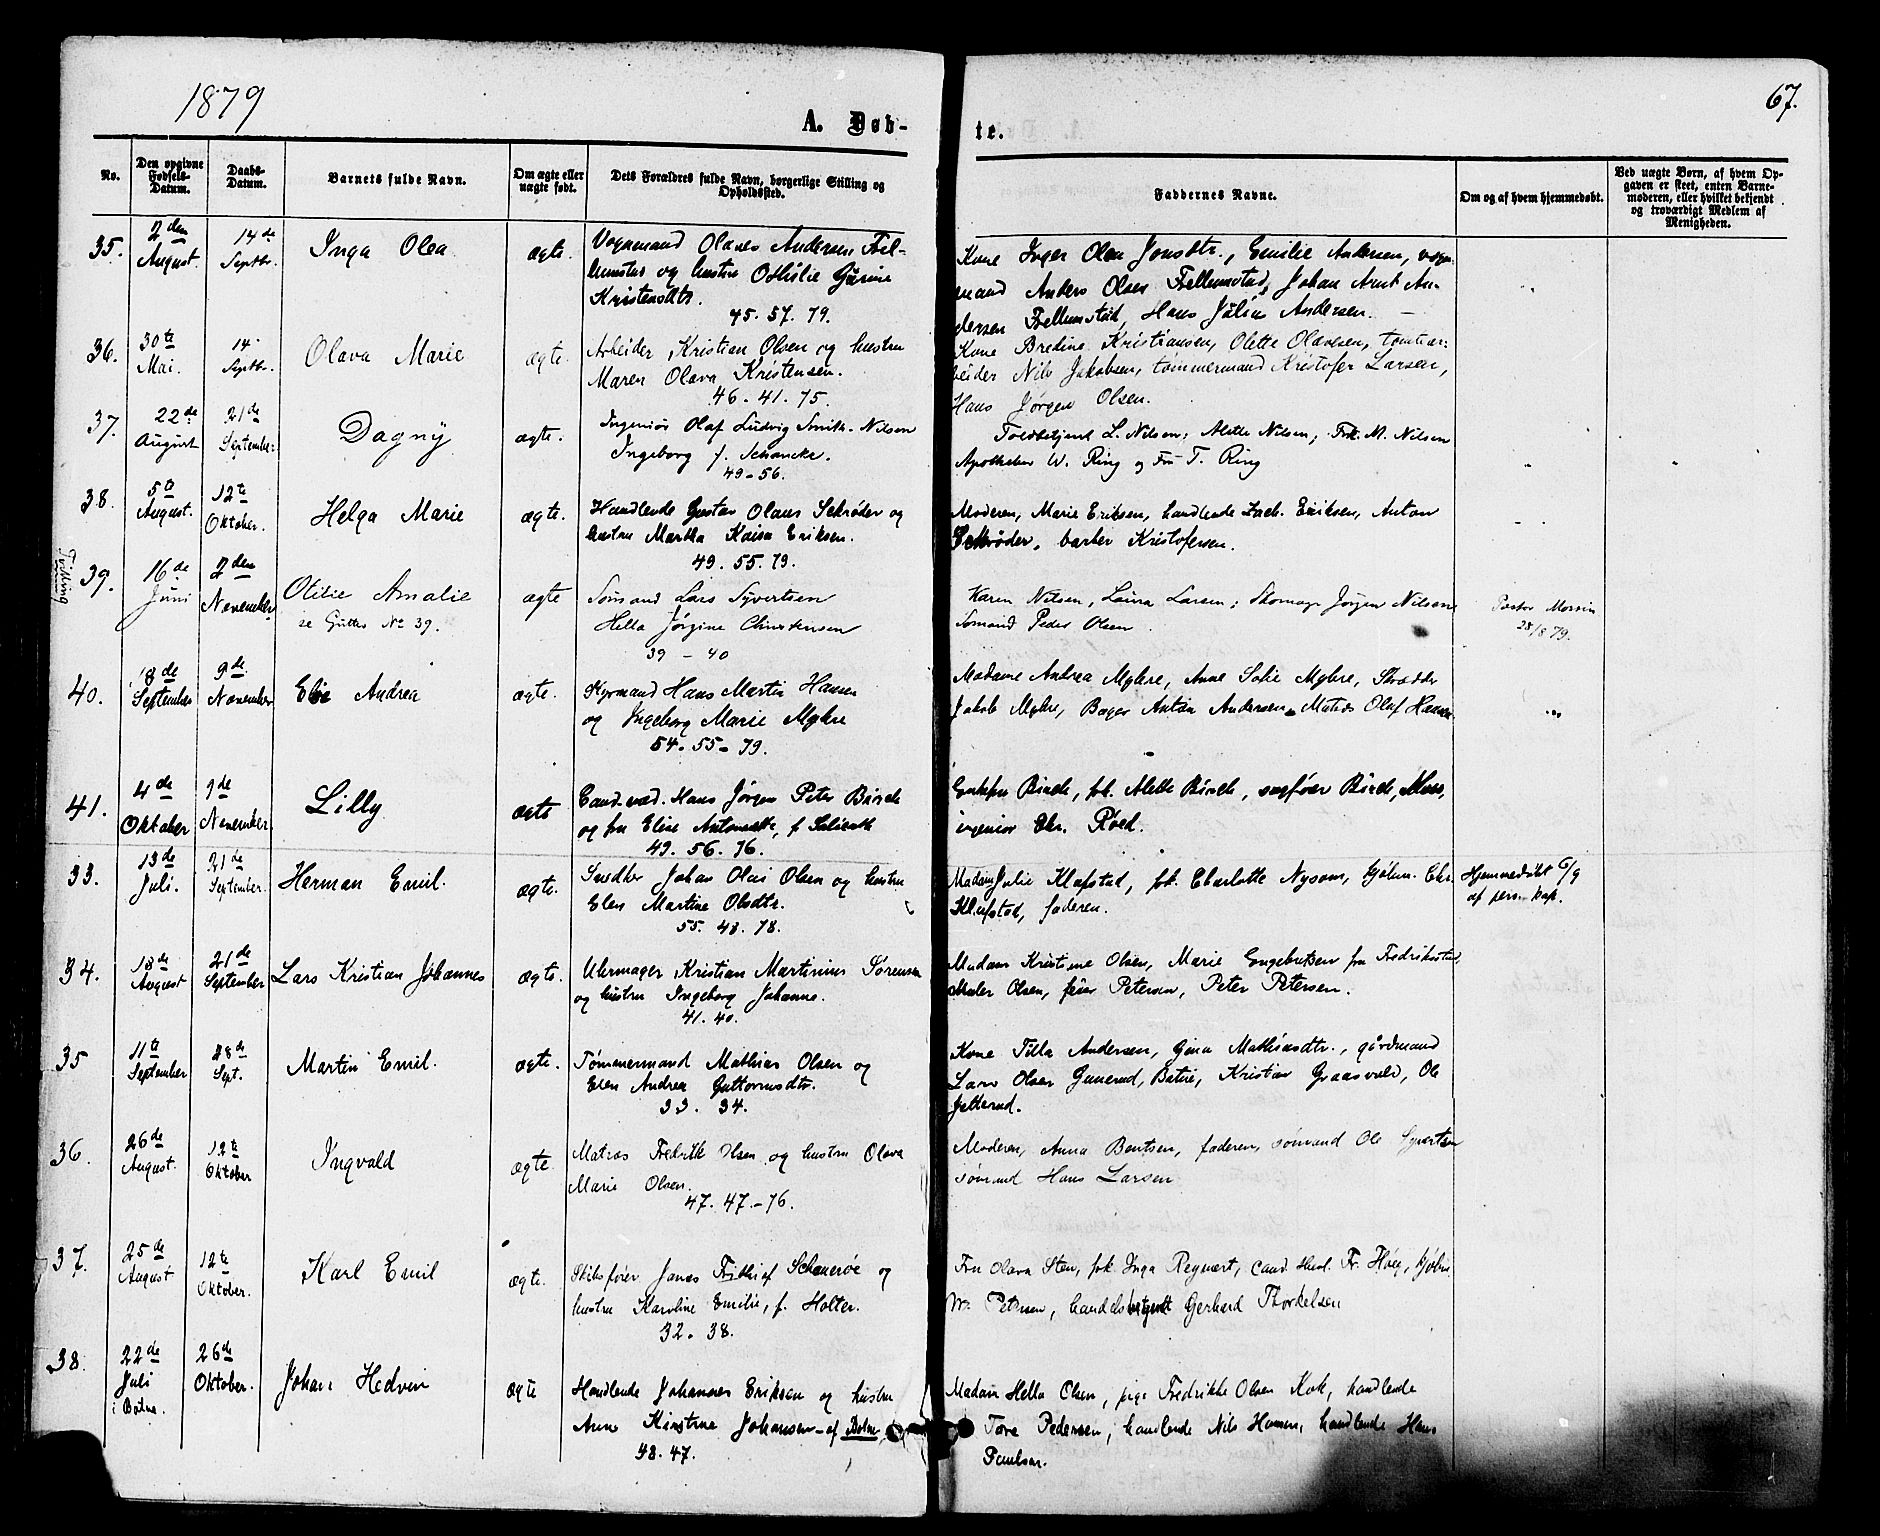 1879
67.
A. Døb-
te.
No.
Den opgivne Fødsels-Datum.
Daabs-Datum.
Barnets fulde Navn.
Om ægte eller uægte født.
Dets Forældres fulde Navn, borgerlige Stilling og Opholdssted.
Faddernes Navne.
Om og af hvem hjemmedøbt.
Ved uægte Børn, af hvem Opgaven er skeet, enten Barnemoderen, eller hvilket bekjendt og troværdigt Medlem af Menigheden.
35. 2den August. 14de Septbr. Inga Olea ægte. Vognmand Olaves Andersen
og hustru Othilie Gurine
Kristensdtr.
45. 57. 79.
Kone Inger Olea Jonsdtr., Emilie Andersen, vogn-
mand Anders Olsen Frellumstad, Johan Arnt An-
dersen Frellumstad, Hans Julius Andersen.
36. 30te Mai. 14. Septbr. Olava Marie ægte. Arbeider Kristian Olsen og hustru
Maren Olava Kristensen.
46. 41. 75.
Kone Bredine Kristiansen, Olette Olavesen, tomtear-
beider Nils Jakobsen, tømmermand Kristofer Larsen,
Hans Jørgen Olsen.
37. 22de August 21de September. Dagny ægte. Ingeniør Olaf Ludvig Smith-Nilsen
Ingeborg f. Schancke.
49-56.
Toldbetjent L. Nilsen, Alette Nilsen, Frk. M. Nilsen
Apotheker W. Ring og Fru T. Ring
38. 5te August. 12te Oktober. Helga Marie ægte. Handlende Gustav Olaus Schrøder og
hustru Martha Kaisa Eriksen.
49. 55. 79.
Moderen, Marie Eriksen, handlende Zach. Eriksen, Anton
Schrøder, barber Kristofersen.
Tvilling
39. 16de Juni 2den November Otilie Amalie
se Guttes No 39.
ægte Sømand Lars Syvertsen
Hella Jørgine Christensen
39 - 40
Karen Nilsen, Laura Larsen; Skomager Jørgen Nilsen
Sømand Peder Olsen
Pastor
28/8 79.
40. 18de September 9de November Elise Andrea ægte. Styrmand Hans Martin Hansen
og Ingeborg Marie Myhre
54-55-79.
Madame Andrea Myhre, Anne Sofie Myhre, Skrædder
Jakob Myhre, Bager Anton Andersen, Matros Olaf Hansen
41. 4de Oktober 9de November. Lilly ægte Cand. med. Hans Jørgen Peter Birch
og fru Elise Antonette, f.
49. 56. 76.
Enkefru Birch, frk. Alette Birch, sagfører Birch, Moss,
ingeniør Chr. Røed.
33. 13de Juli. 21de September. Herman Emil. ægte. Snedker Johan Olai Olsen og hustru
Elen Martine Olsdtr.
55. 48. 78.
Madam Julie Klufstad, frk. Charlotte Nysom, kjøbm. Chr.
Klufstad, faderen.
Hjemmedøbt 6/9
af pers. kap.
34. 18de August 21de September Lars Kristian Johannes ægte. Uhrmager Kristian Martinius Sørensen
og hustru Ingeborg Johanne.
41. 40.
Madam Kristine Olsen, Marie Engebretsen fra Fredrikstad,
Maler Olsen, feier Petersen, Peter Petersen.
35 11te September 28de Sept. Martin Emil. ægte. Tømmermand Mathias Olsen og
Elen Andrea Guttormsdtr.
33. 34.
Kone Tilla Andersen, Gina Mathiasdtr., gårdmand
Lars Olsen Gunerud, Kristian Graasvold, Ole
Jelterud.
36. 26de August. 12te Oktober Ingvald ægte. Matros Fredrik Olsen og hustru Olava
Marie Olsen.
47. 47.-76.
Moderen, Anna Bentsen, faderen, sømand Ole Syvertsen
sømand Hans Larsen
37. 25de August 12te Oktober. Karl Emil ægte. Skibsfører Jonas Frithief og
hustru Karoline Emilie, f. Holter.
32. 38.
Fru Olava Sten, frk. Inga Regnert, Cand. theol. Fr. Høeg, kjøbm.
W. Petersen, handelsbetjent Gerhard Thorkelsen
38. 22de Juli i Botne. 26de Oktober. Johan Hedvin ægte Handlende Johannes Eriksen og hustru
Anne Kirstine Johansen - af Botne.
48. 47.
Madam Hella Olsen, pige Fredrikke Olsen Kok, handlende
Tore Pedersen, handlende Nils Hansen, handlende Hans
Paulsen.